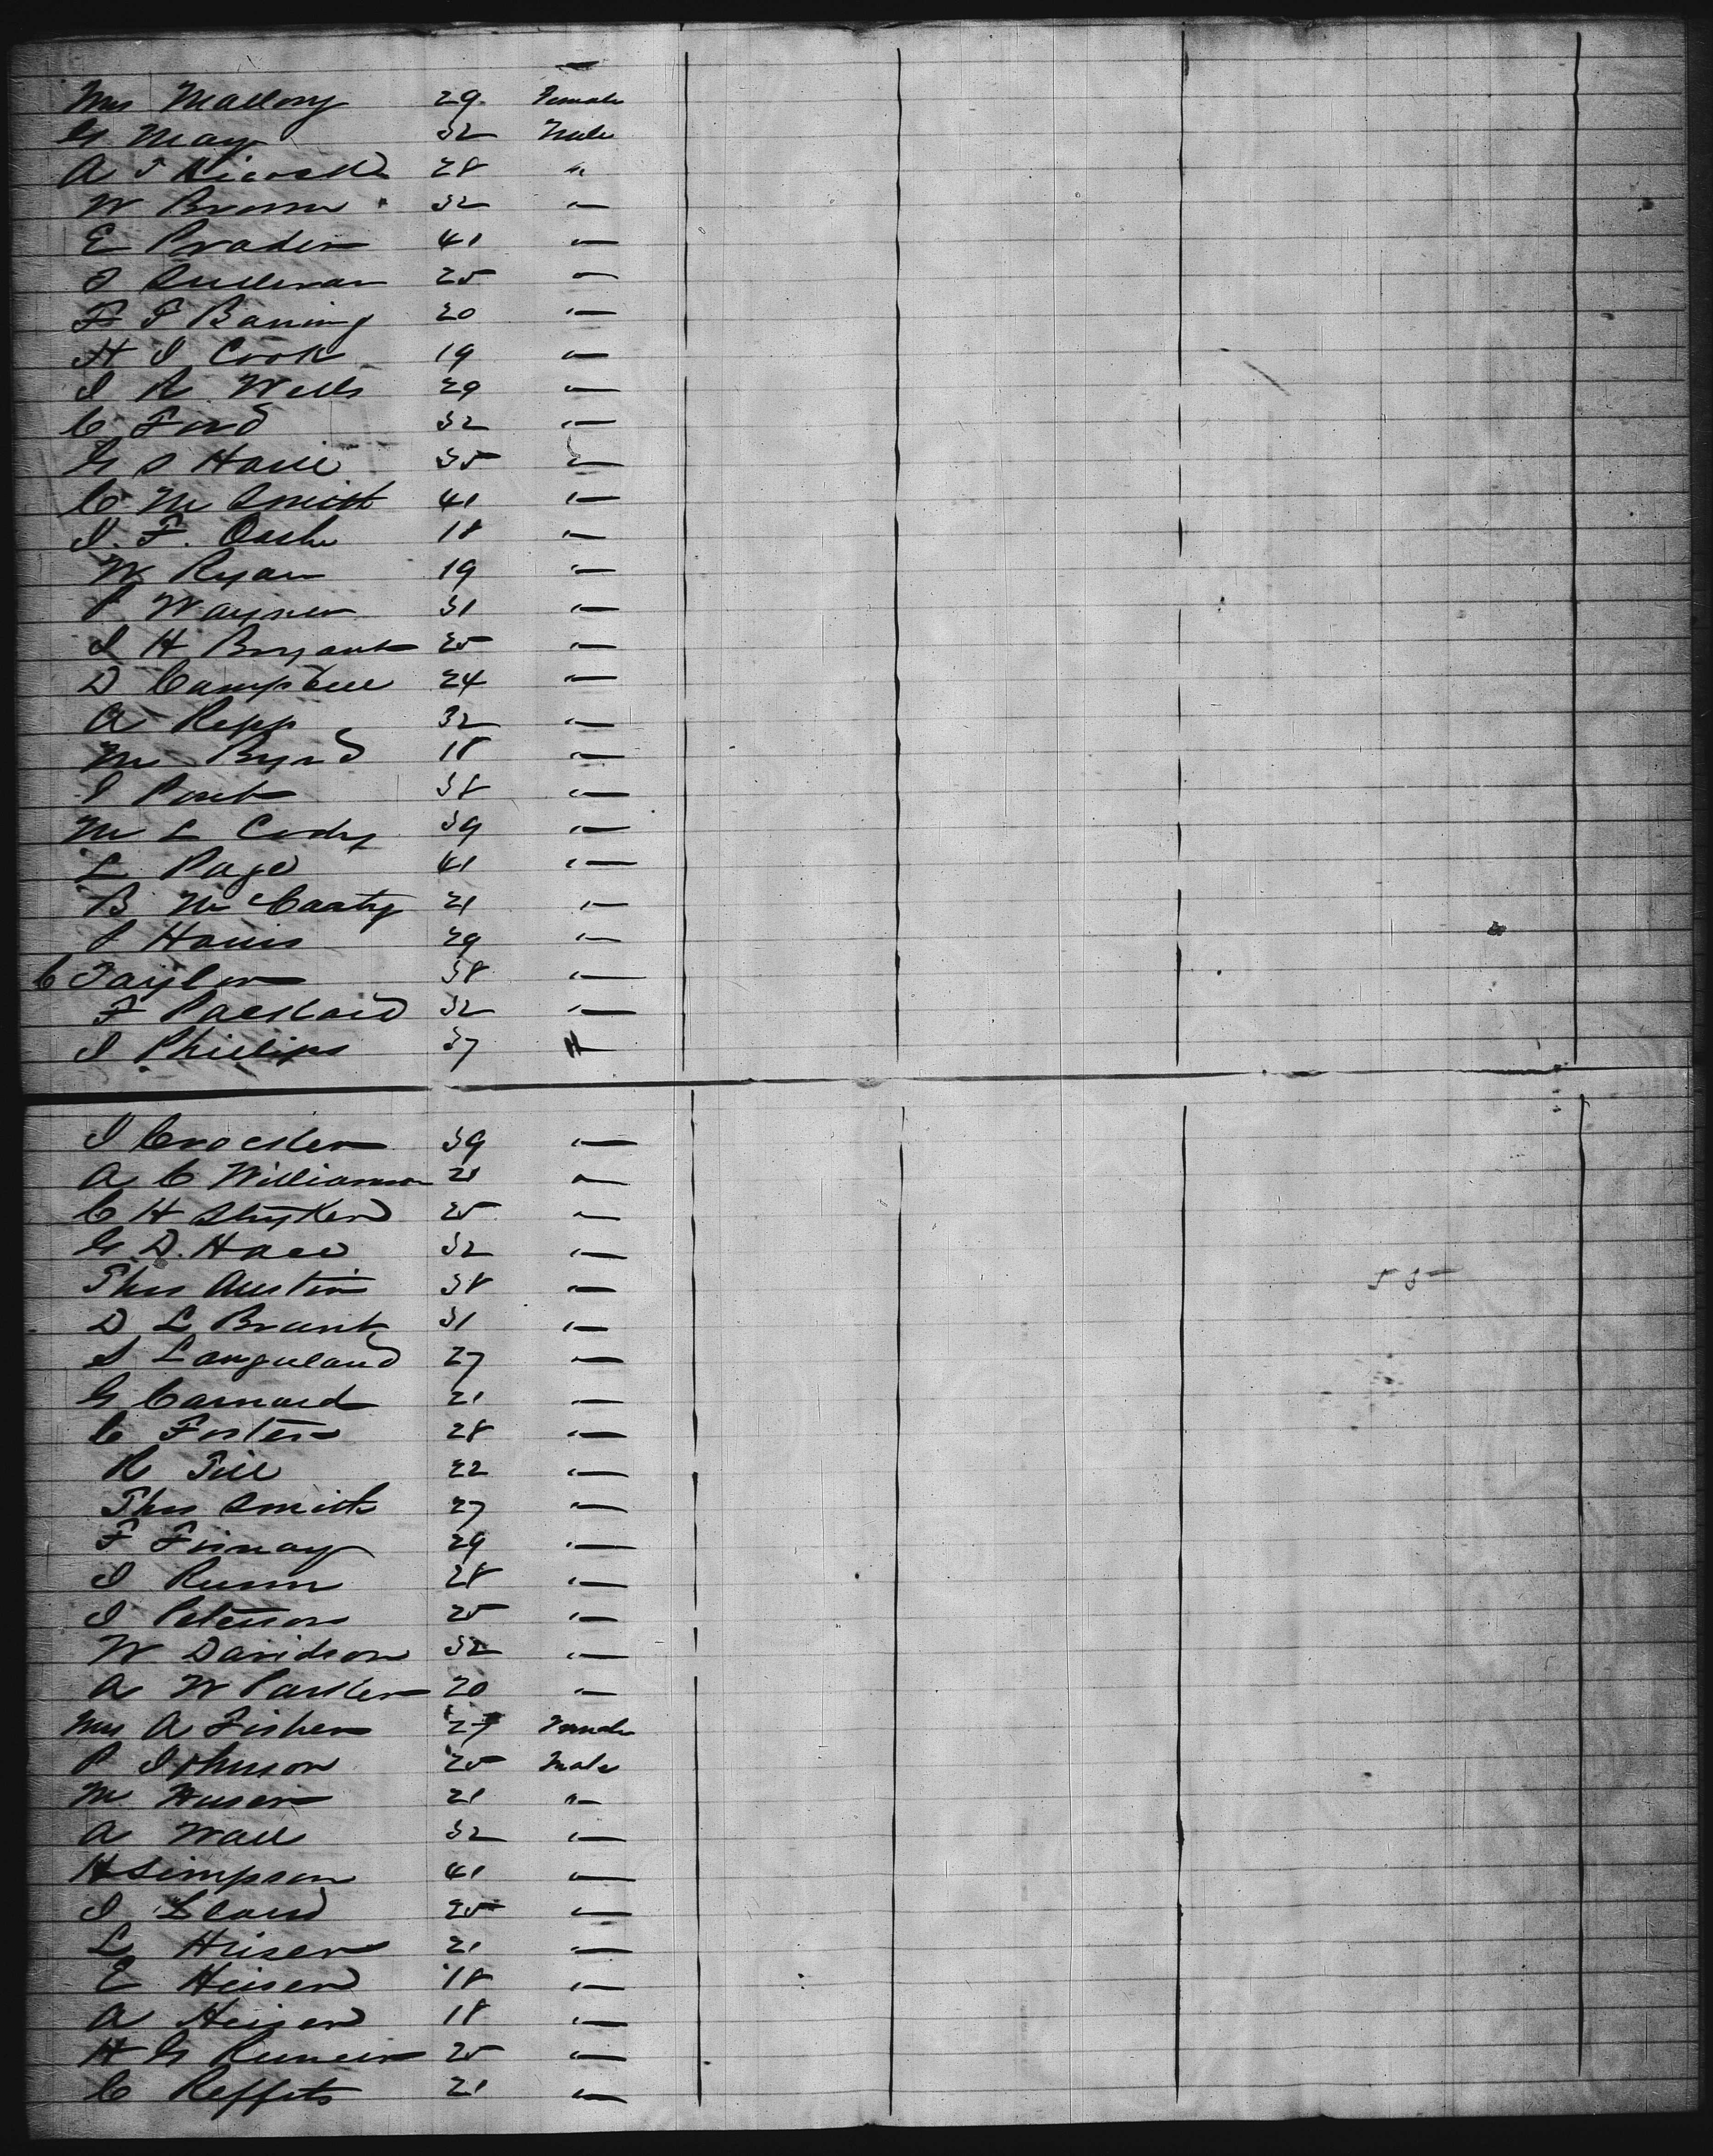 Mrs Mallory 29 Female
G May 32 Male
A J 28 "
W Brown 32 "
E Prader 41 "
J Sullivan 25 "
F T Baning 20 "
H J Cook 19 "
J R Wells 29 "
C Ford 32 "
G S Hall 35 "
C M Smith 41 "
J. F. Cash 18 "
W Ryan 19 "
P Wayner 31 "
J H Bryant 25 "
D Campbell 24 "
A Repp 32 "
M Byrd 18 "
J Post 38 "
M L Cody 39 "
L Page 41 "
B McCarty 21 "
P Harris 29 "
C Taylor 38 "
F Packard 32 "
J Phillips 37 "
J Crocker 39 "
A C Williamson 21 "
C H Stryker 25 "
G. D. Hall 32 "
Thos Austin 38 "
D L Brant 31 "
S Langueland 27 "
G Barnard 21 "
C Foster 28 "
R Till 22 "
Thos Smith 27 "
F Finnay 29 "
J 28 "
J Peterson 25 "
W Davidson 32 "
A W Parker 20 "
Mrs A Fisher 27 Female
P Johnson 25 Male
M Huser 21 "
A Wall 32 "
H Simpson 41 "
J Lland 25 "
L Heiser 21 "
E Heiser 18 "
A Heiser 18 "
H G 25 "
C Reffits 21 "
55